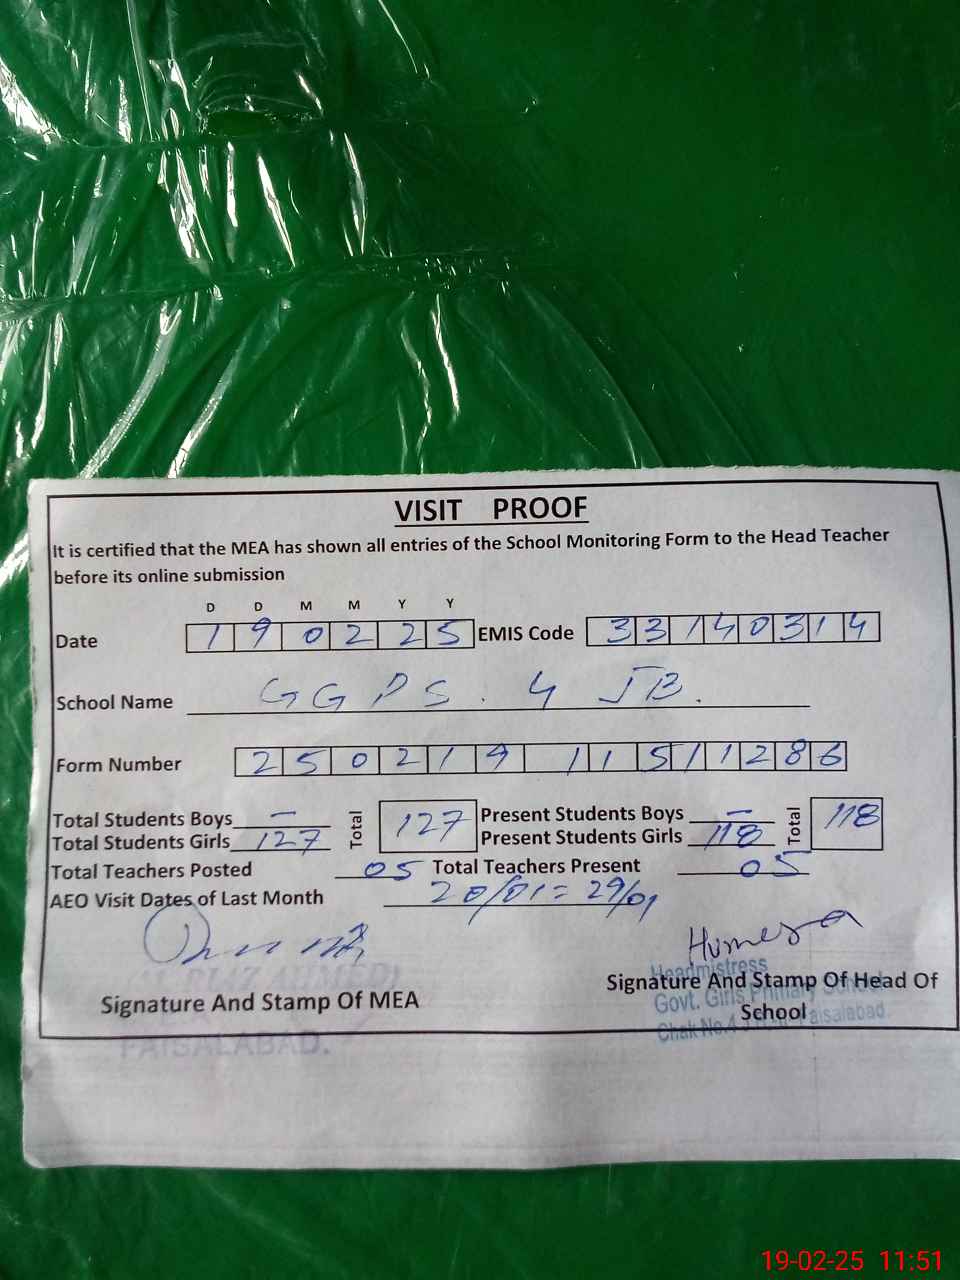 VISIT PROOF
It is certified that the MEA has shown all entries of the School Monitoring Form to the Head Teacher
before its online submission
D D M M Y Y
Date 1 9 0 2 2 5 EMIS Code 3 3 1 4 0 3 1 4
School Name GGPS. 4 JB.
Form Number 2 5 0 2 1 9 1 1 5 1 1 2 8 6
Total Students Boys – Total 127 Present Students Boys – Total 118
Total Students Girls 127 Present Students Girls 118
Total Teachers Posted 05 Total Teachers Present 05
AEO Visit Dates of Last Month 20/01 = 29/01
Humera
Headmistress
Signature And Stamp Of MEA Signature And Stamp Of Head Of
Govt. Girls Primary School
School
Chak No.4 Faisalabad.
FAISALABAD.
19-02-25 11:51